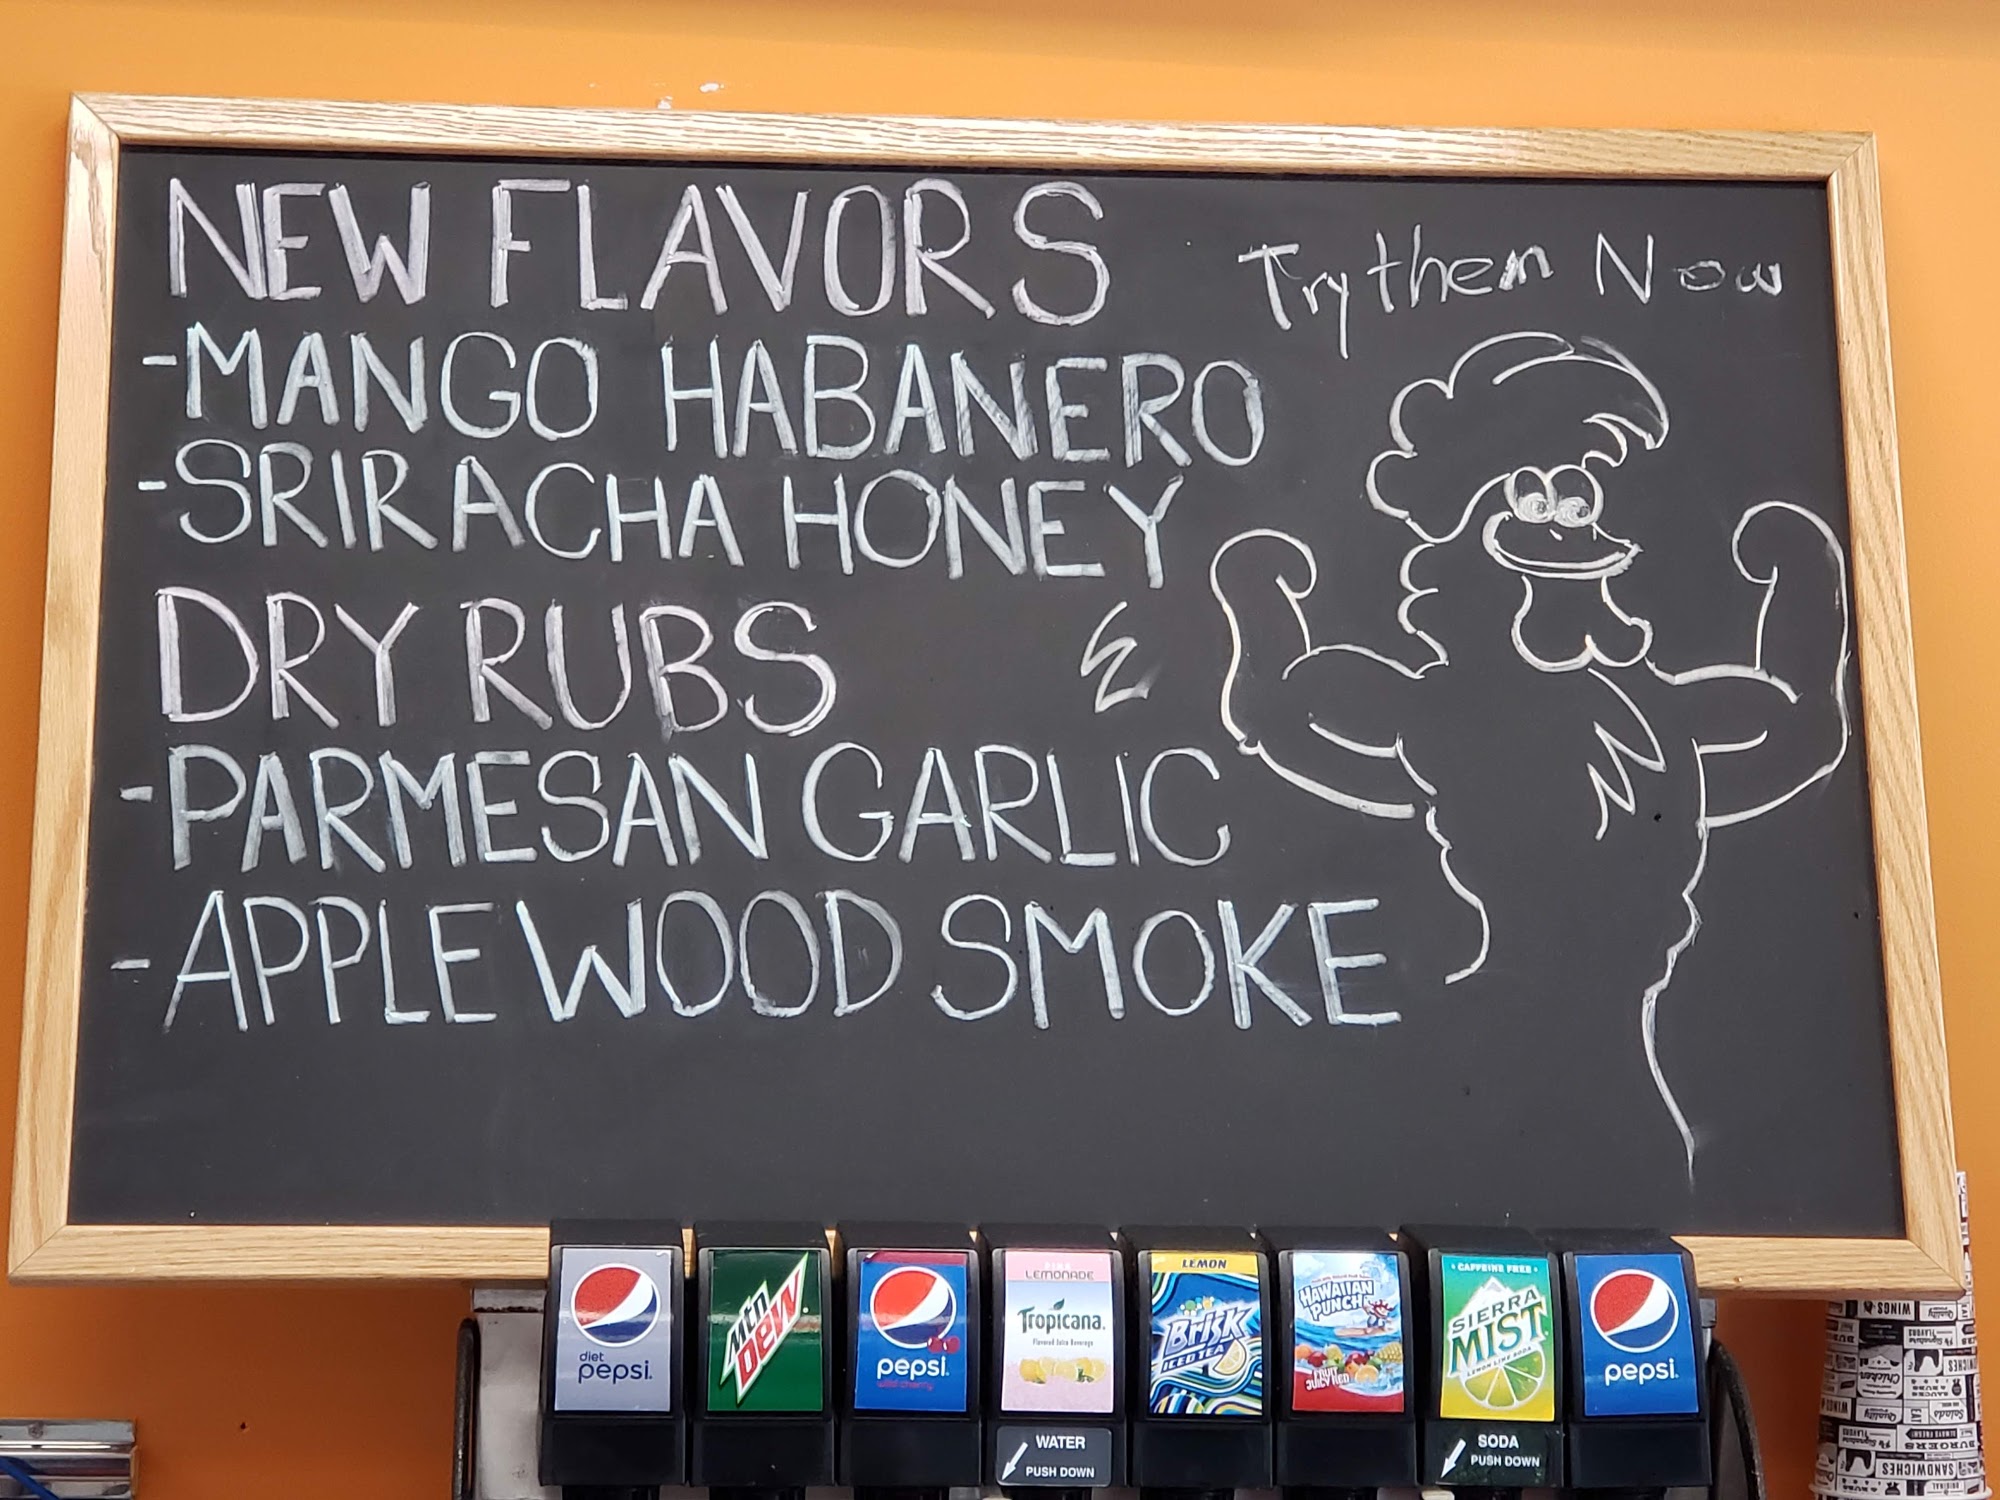 NEW FLAVORS
Try them Now
-MANGO HABANERO
-SRIRACHA HONEY
DRY RUBS
-PARMESAN GARLIC
-APPLEWOOD SMOKE
diet
pepsi.
Mtn
DEW
pepsi.
wild cherry
PINK
LEMONADE
Tropicana.
Flavored Juice Beverage
WATER
PUSH DOWN
LEMON
BRISK
ICED TEA
HAWAIIAN
PUNCH
FRUIT
JUICY RED
CAFFEINE FREE
SIERRA
MIST
LEMON LIME SODA
SODA
PUSH DOWN
pepsi.
WINGS
Chicken
Quality
EAT
Salads
BURGERS
SANDWICHES